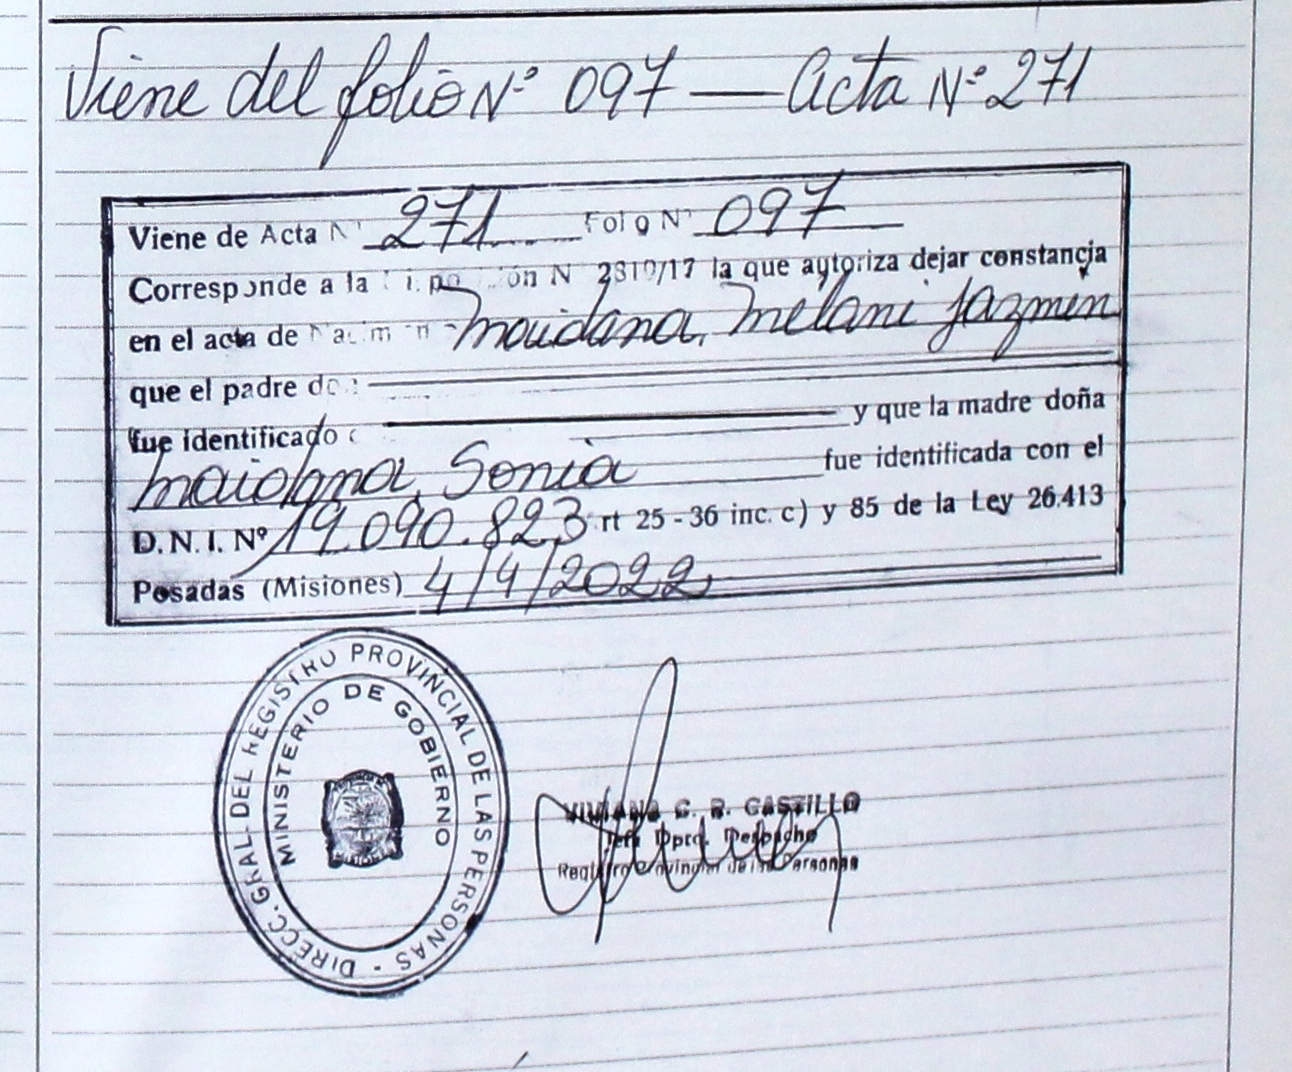 Viene del folio Nº 097 — Acta Nº 271
Viene de Acta N° 271 Folio N° 097
Corresponde a la N 2810/17 la que autoriza dejar constancia
en el acta de Maidana, Melani Jazmin
que el padre don
fue identificado y que la madre doña
Maidana, Sonia fue identificada con el
D.N.I. Nº 19.090.823 rt 25 - 36 inc. c) y 85 de la Ley 26.413
Posadas (Misiones) 4/4/2022
DIRECC. GRAL. DEL REGISTRO PROVINCIAL DE LAS PERSONAS -
MINISTERIO DE GOBIERNO
VIVIANA C. R. CASTILLO
Jefe Dpto. Despacho
Registro Provincial de las Personas